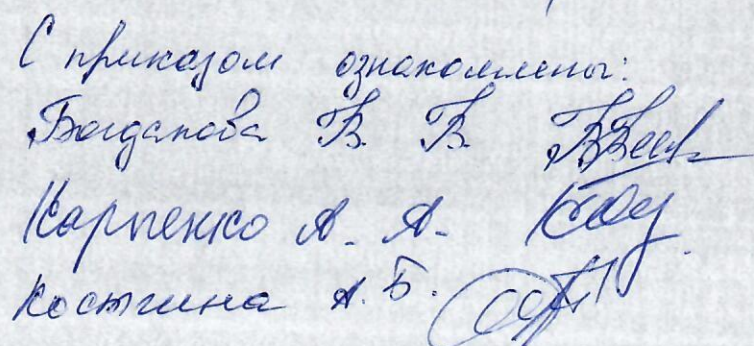 С приказом ознакомлены:
Богданова В. В.
Карпенко А. А.
Костина А. Б.